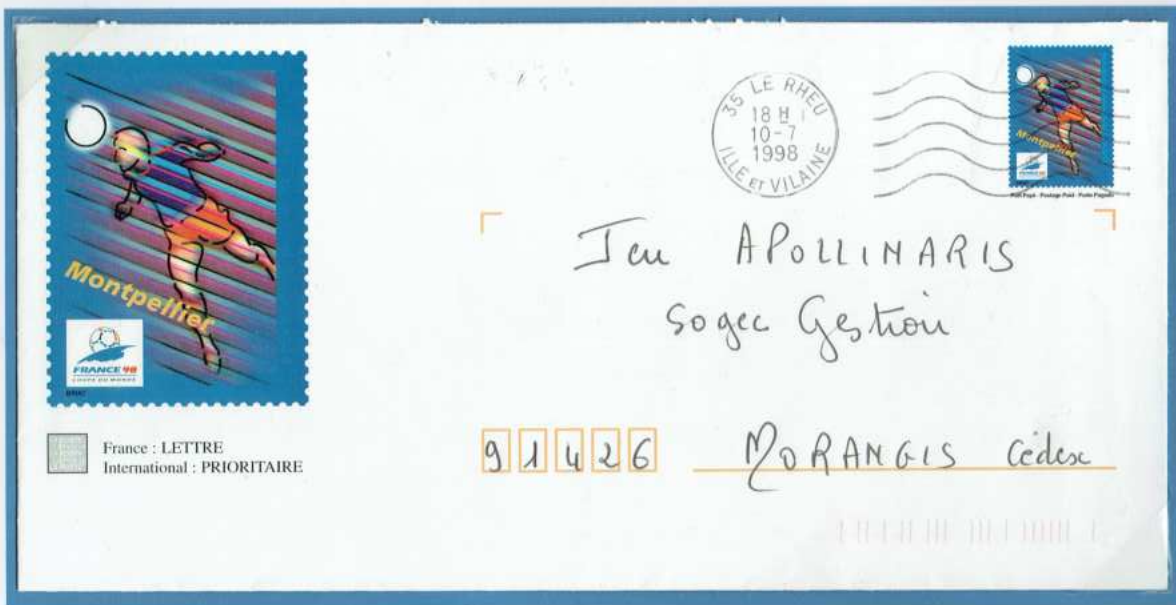 Montpellier
FRANCE 98
COUPE DU MONDE
France : LETTRE
International : PRIORITAIRE
35 LE RHEU
18 H
10-7
1998
ILLE et VILAINE
Montpellier
FRANCE 98
Port Payé - Postage Paid - Porte Pagado
Jeu APOLLINARIS
Sogec Gestion
91426 MORANGIS Cédex